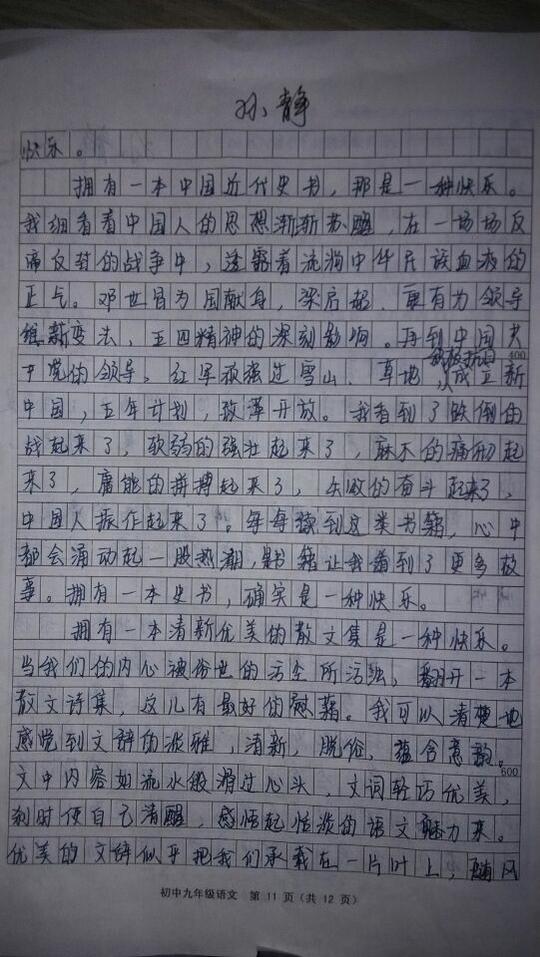 孙静
快乐。
拥有一本中国近代史书，那是一种快乐。
我细看着中国人的思想渐渐苏醒，在一场场反
帝反封的战争中，透露着流淌中华民族血液的
正气。邓世昌为国献身，梁启超、康有为领导
维新变法，五四精神的深刻影响。再到中国共
产党的领导，红军顽强过雪山、草地，成立新
中国，五年计划，改革开放。我看到了跌倒的
战起来了，软弱的强壮起来了，麻木的痛形起
来了，庸能的拼搏起来了，失败的奋斗起来了，
中国人振作起来了。每每读到这类书籍，心中
都会涌动起一股热潮，是书籍让我看到了更多故
事。拥有一本史书，确实是一种快乐。
拥有一本清新优美的散文集是一种快乐。
当我们的内心被俗世的污尘所污蚀，翻开一本
散文诗集，这儿有最好的慰藉。我可以清楚地
感觉到文辞的淡雅，清新，脱俗，蕴含意韵。
文中内容如流水般滑过心头，文词轻巧优美，
刹时使自己清醒，感悟起恬淡的语文魅力来。
优美的文辞似乎把我们承载在一片叶上，随风
400
600
初中九年级语文 第 11 页（共 12 页）